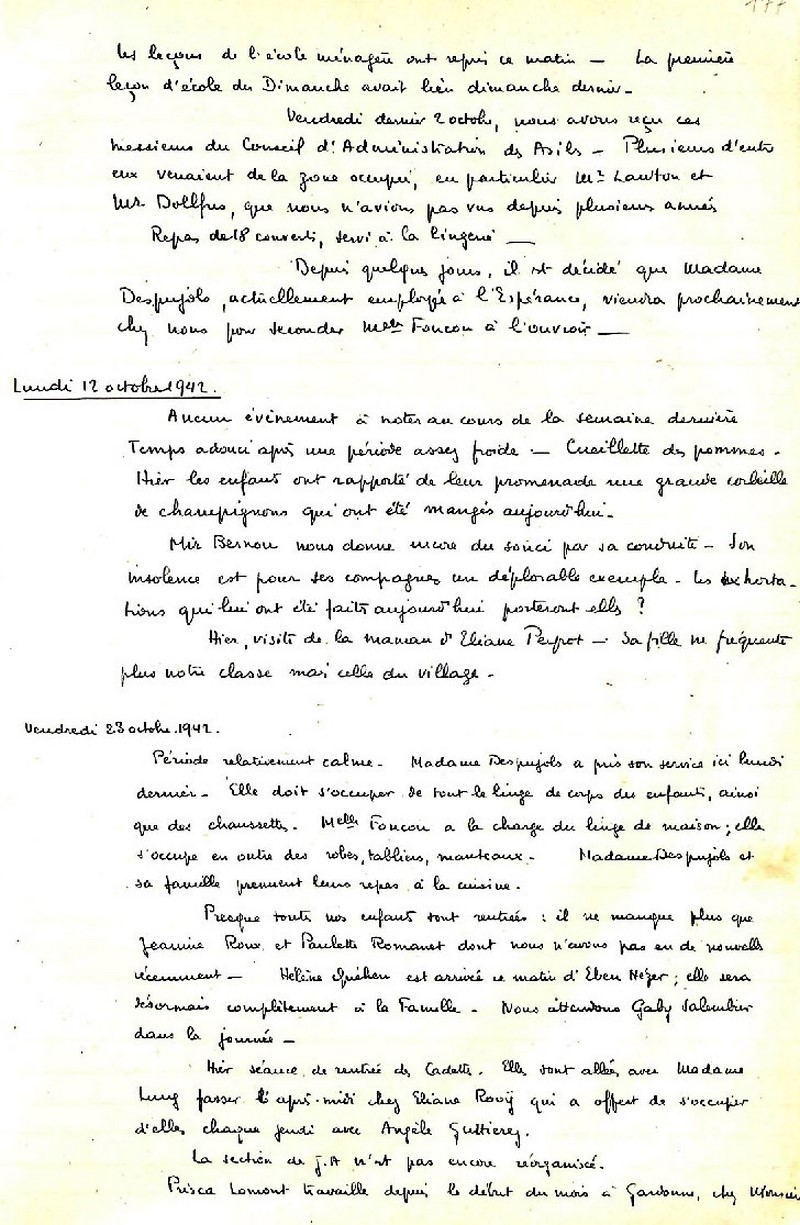 177
Les leçons de l'école ménagère ont repris ce matin — La première
leçon d'école du Dimanche avait lieu dimanche dernier.
Vendredi dernier 2 octobre, nous avons reçu ces
messieurs du Conseil d'Administration des Asiles — Plusieurs d'entre
eux venaient de la zone occupée, en particulier Mr Lawton et
Mr Dollfus, que nous n'avions pas vus depuis plusieurs années
Repas de 18 couverts, servi à la lingerie —
Depuis quelques jours, il est décidé que Madame
Despujols, actuellement employée à l'Espérance, viendra prochainement
chez nous pour seconder Melle Foucou à l'ouvroir —
Lundi 12 octobre 1942.
Aucun événement à noter au cours de la semaine dernière
Temps adouci après une période assez froide — Cueillette des pommes.
Hier les enfants ont rapporté de leur promenade une grande corbeille
de champignons qui ont été mangés aujourd'hui.
Bernou nous donne encore du souci par sa conduite — Son
insolence est pour ses compagnes un déplorable exemple. Les exhorta-
tions qui lui ont été faites aujourd'hui porteront elles ?
Hier, visite de la maman d'Eliane Peyrot — Sa fille ne fréquente
plus notre classe mais celle du village.
Vendredi 23 octobre 1942.
Période relativement calme. Madame Despujols a pris son service ici lundi
dernier. Elle doit s'occuper de tout le linge de corps des enfants, ainsi
que des chaussettes. Melle Foucou a la charge du linge de maison ; elle
s'occupe en outre des robes, tabliers, manteaux. Madame Despujols et
sa famille prennent leurs repas à la cuisine.
Presque toutes nos enfants sont rentrées : il ne manque plus que
Jeannine Roux et Paulette Romanet dont nous n'avons pas eu de nouvelles
récemment — Hélène Quéhen est arrivée ce matin d'Eben Hézer ; elle sera
désormais complètement à la Famille. Nous attendons Gaby Salembier
dans la journée —
Hier séance de rentrée des Cadettes. Elles sont allées avec Madame
Lung passer l'après-midi chez Eliane Rooÿ qui a offert de s'occuper
d'elles chaque jeudi avec Angèle Guttierez.
La section de J.A n'est pas encore réorganisée.
Prisca Lomont travaille depuis le début du mois à Gardonne, chez Monsieur